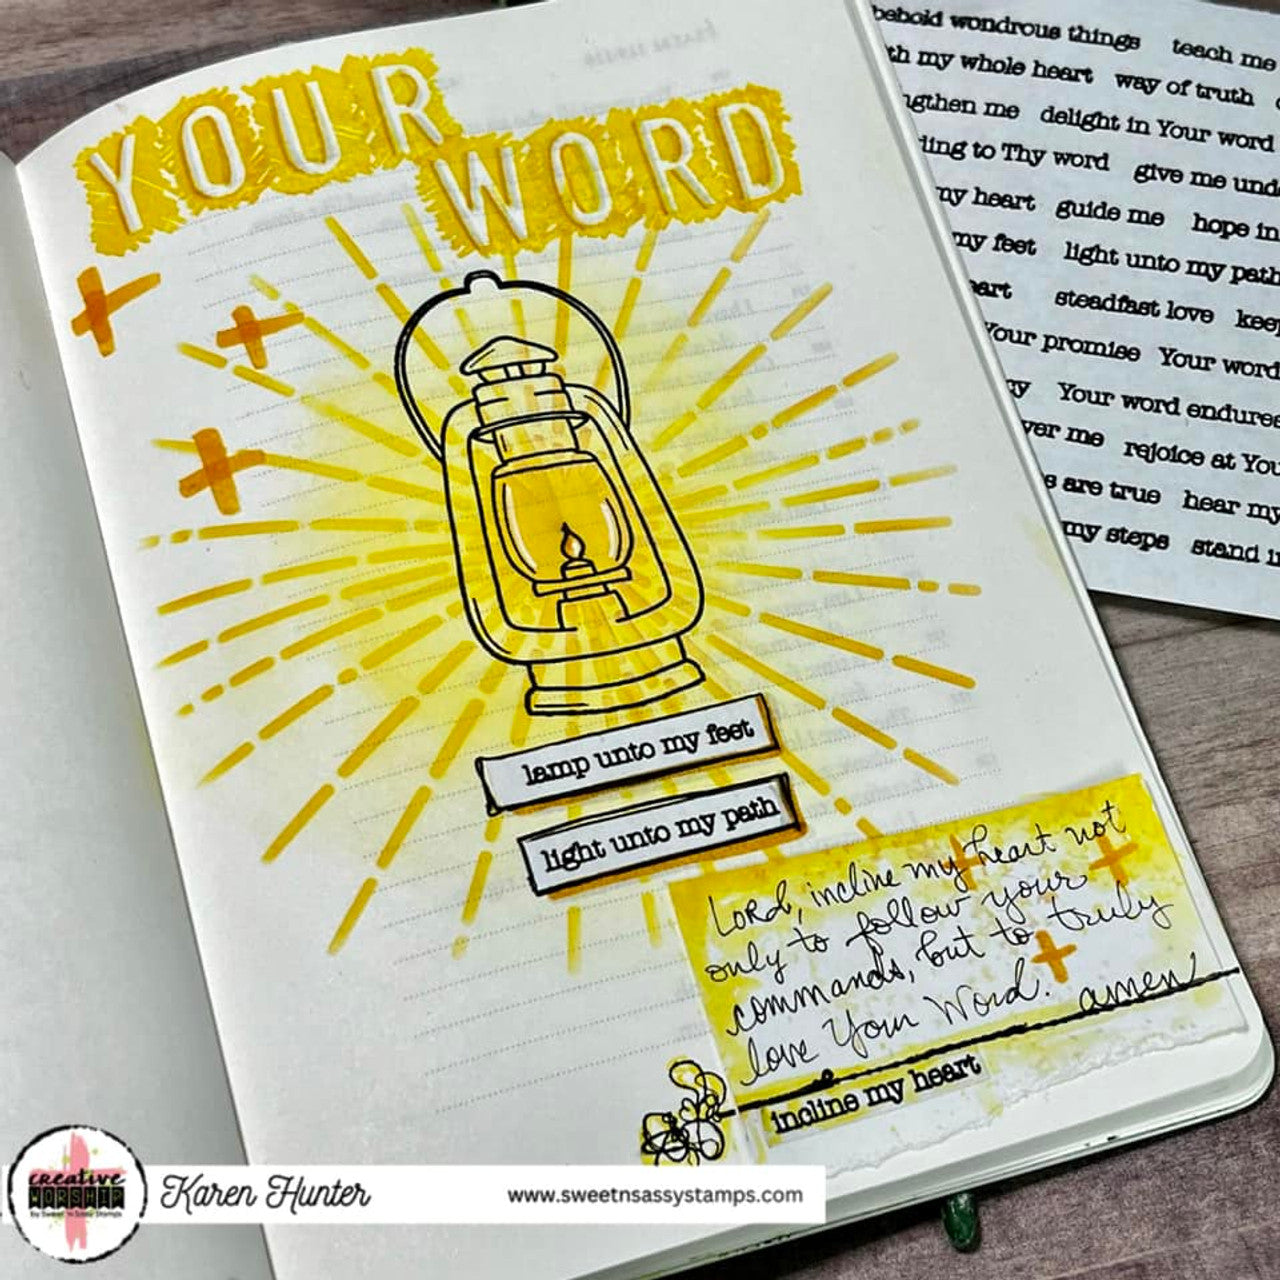 YOUR
WORD
lamp unto my feet
light unto my path
Lord, incline my heart not
only to follow your
commands, but to truly
love Your Word. amen
incline my heart
behold wondrous things teach me
my whole heart way of truth
me delight in Your word
to Thy word give me
my heart guide me hope in
my feet light unto my path
steadfast love
Your promise Your word
Your word
me rejoice at
are true hear my
my steps stand
creative
WORSHIP
by Sweet 'n Sassy Stamps
Karen Hunter
www.sweetnsassystamps.com